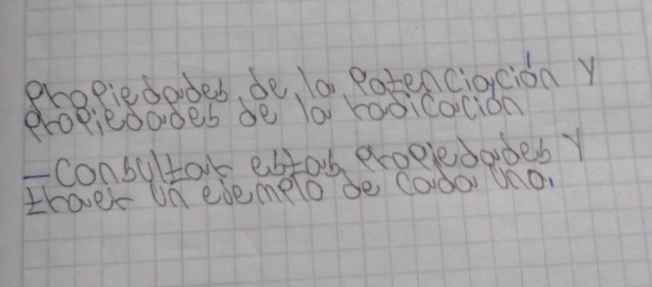 propiedades de la Potenciación y
propiedades de la radicación
- Consultar estas propiedades y
traer un ejemplo de Cada una.